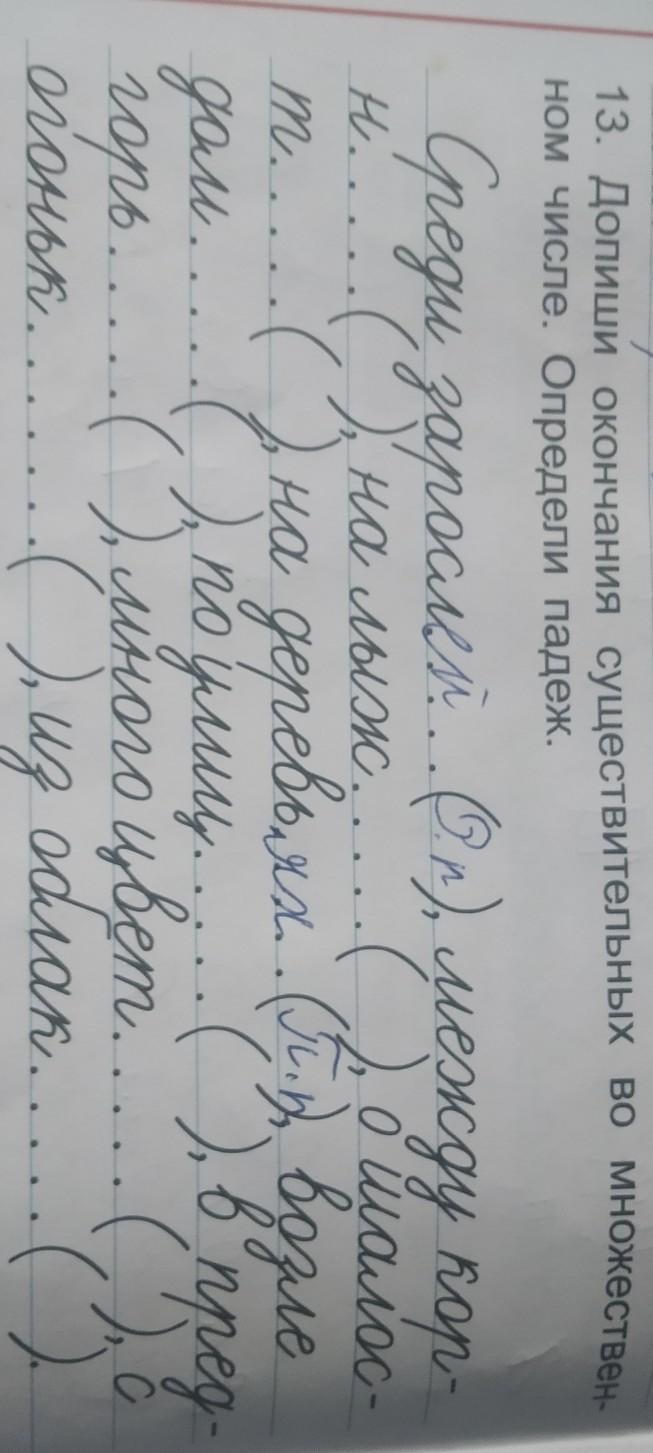 13. Допиши окончания существительных во множествен-
ном числе. Определи падеж.
Среди зарослей... (Р.п), между кор-
н..... ( ), на лыж..... ( ), о шалос-
т..... ( ), на деревьях.. (П.п), возле
дом..... ( ), по улиц..... ( ), в пред-
горь..... ( ), много цвет..... ( ), с
огоньк....... ( ), из облак..... ( ).